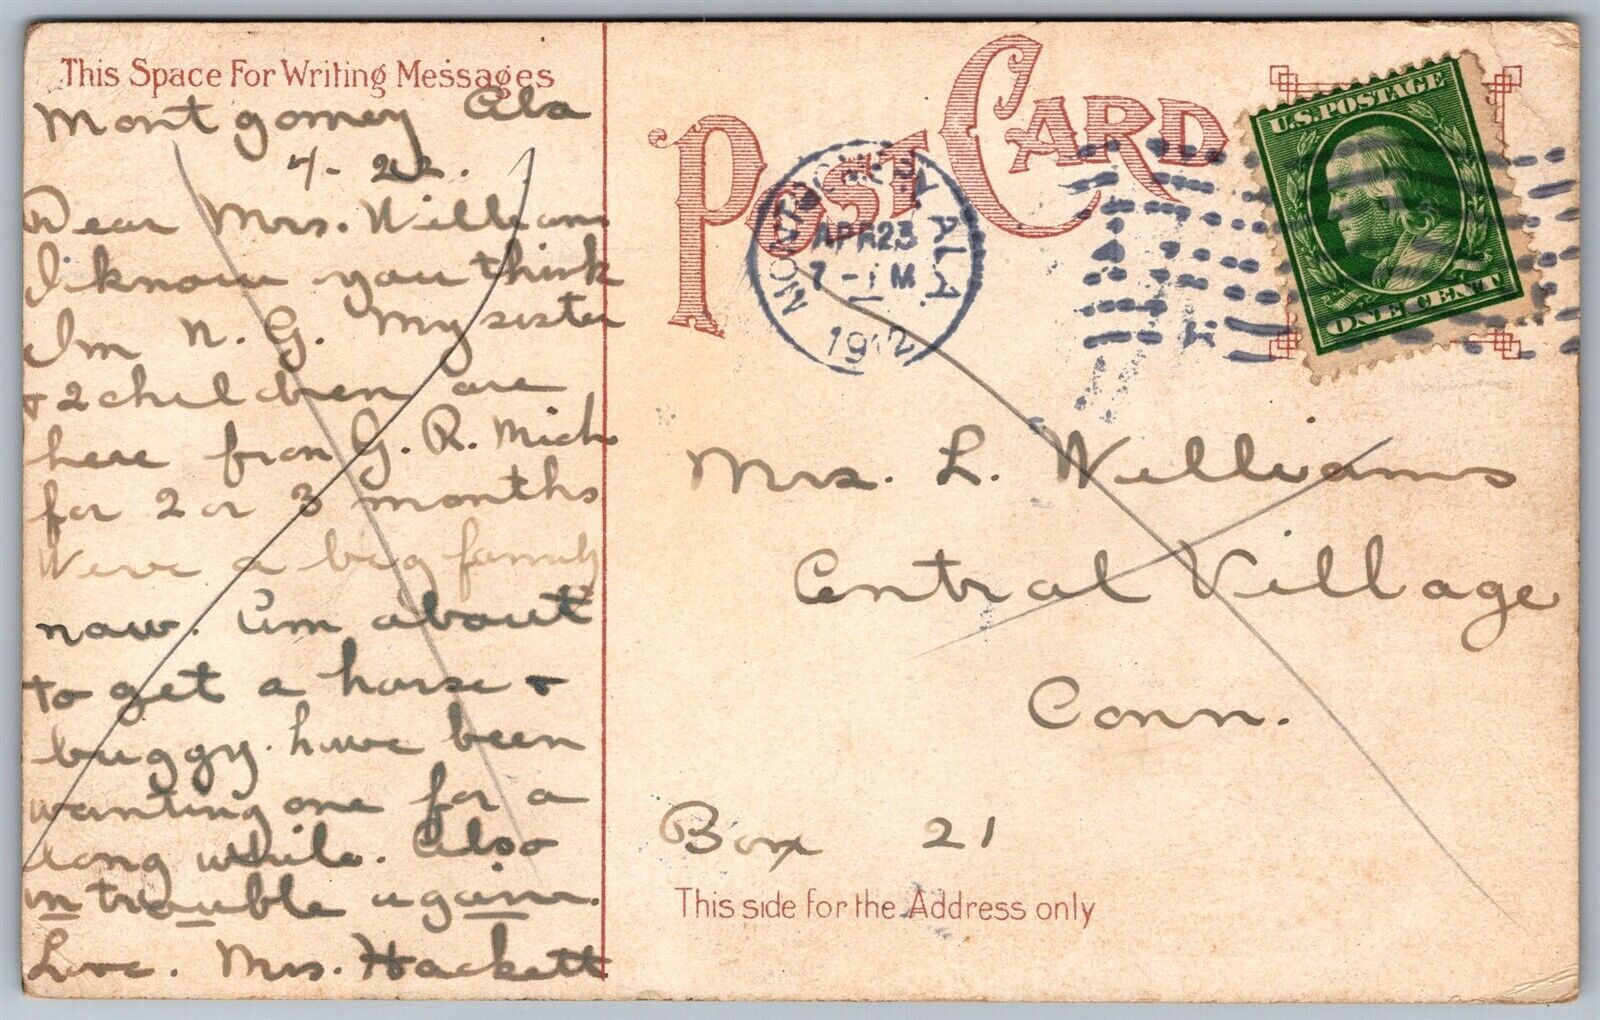 This Space For Writing Messages
Montgomey Ala
4-22.
Dear Mrs. Williams
I know you think
Im N. G. My sister
+ 2 children are
here from G. R. Mich
for 2 or 3 months
Weve a big family
now. Am about
to get a horse +
buggy. have been
wanting one for a
long while. Also
in trouble again.
Love. Mrs. Hackett
POST CARD
MONTGOMERY ALA.
APR 23
7 - M
1912
U.S. POSTAGE
ONE CENT
Mrs. L. Williams
Central Village
Conn.
Box 21
This side for the Address only